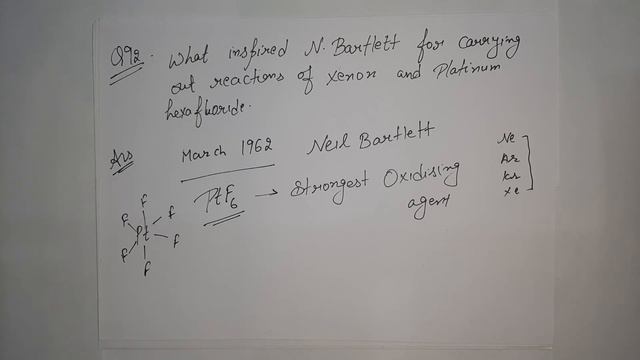 Q92. What inspired N. Bartlett for carrying
out reactions of Xenon and Platinum
hexafluoride.
Ans March 1962 Neil Bartlett
PtF6 → Strongest Oxidising
agent
Ne
Ar
Kr
Xe
F
F F
Pt
F F
F